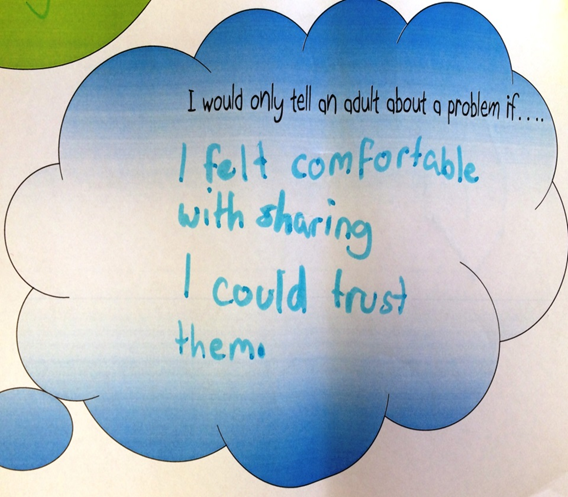 I would only tell an adult about a problem if....
I felt comfortable
with sharing
I could trust
them.